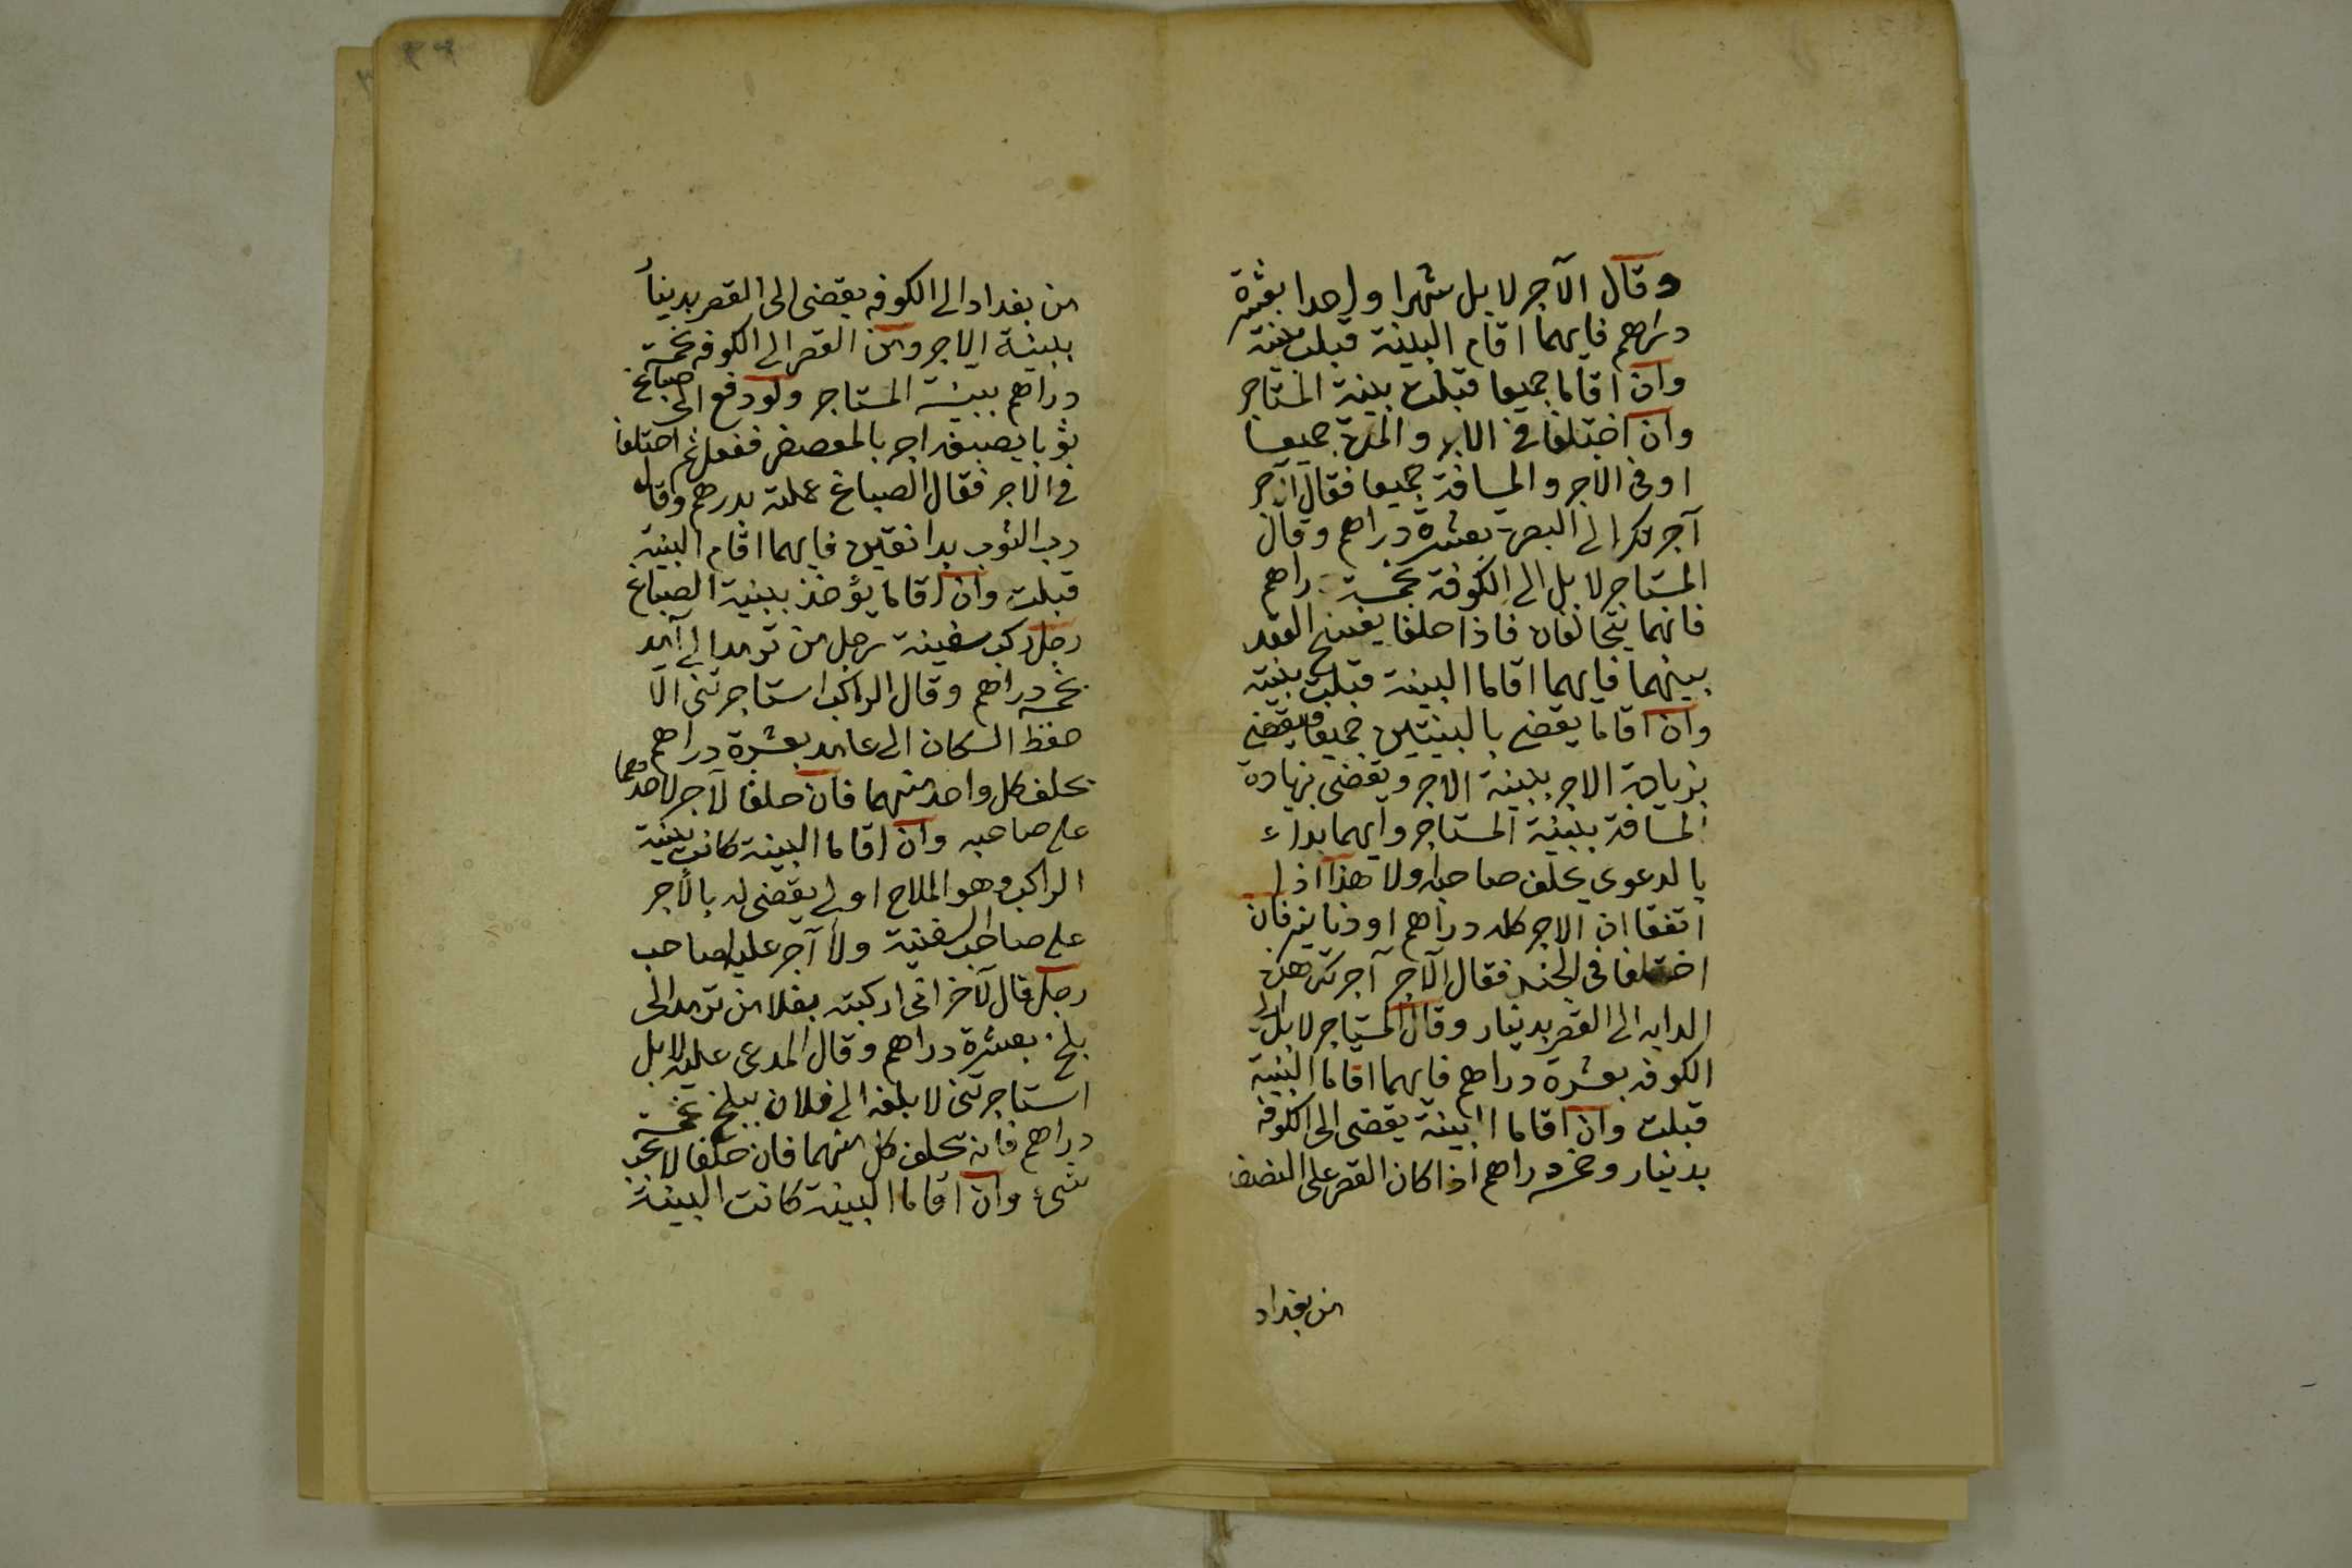 وقال الآجر لا بل شهرا واحدا بعشرة
دراهم فايهما اقام البينة قبلت بينته
وان اقاما جميعا قبلت بينة المستاجر
وان اختلفا في الاجر والمدة جميعا
او في الاجر والمسافة جميعا فقال الآجر
آجرتك الى البصرة بعشرة دراهم وقال
المستاجر لا بل الى الكوفة بخمسة دراهم
فانهما يتحالفان فاذا حلفا يفسخ العقد
بينهما فايهما اقاما البينة قبلت بينته
وان اقاما يقضى بالبينتين جميعا فيقضى
بزيادة الاجر ببينة الاجر ويقضى بزيادة
المسافة ببينة المستاجر وايهما بداء
بالدعوى يحلف صاحبه اولا هذا اذا
اتفقا ان الاجر كله دراهم او دنانير فان
اختلفا في الجنس فقال الآجر آجرتك هذه
الدابه الى القصر بدينار وقال المستاجر لا بل الى
الكوفه بعشرة دراهم فايهما اقاما البينة
قبلت وان اقاما البينة يقضى الى الكوفه
بدينار وخمسه دراهم اذا كان القصر على النصف
من بغداد
من بغداد الى الكوفه يقضى الى القصر بدينار
ببينة الاجر ومن القصر الى الكوفه بخمسة
دراهم ببينة المستاجر ولو دفع الى صباغ
ثوبا يصبغه احمر بالعصفر ففعل ثم اختلفا
في الاجر فقال الصباغ عملته بدرهم وقال
رب الثوب بدانقين فايهما اقام البينة
قبلت وان اقاما يؤخذ ببينة الصباغ
رجل ركب سفينة رجل من ترمد الى آمد
بخمسه دراهم وقال الراكب استاجرتنى الا
حفظ السكان الى عامد بعشرة دراهم
يحلف كل واحد منهما فان حلفا لا اجر لاحدهما
على صاحبه وان اقاما البينة كانت بينة
الراكب وهو الملاح اولى يقضى له بالاجر
على صاحب السفينة ولا آجر عليه لصاحب
رجل قال لآخر انى اركبته بغلا من ترمد الى
بلخ بعشرة دراهم وقال المدعى عليه لا بل
استاجرتنى لا بلغه الى فلان ببلخ بخمسة
دراهم فانه يحلف كل منهما فان حلفا لا يجب
شيء وان اقاما البينة كانت البينة